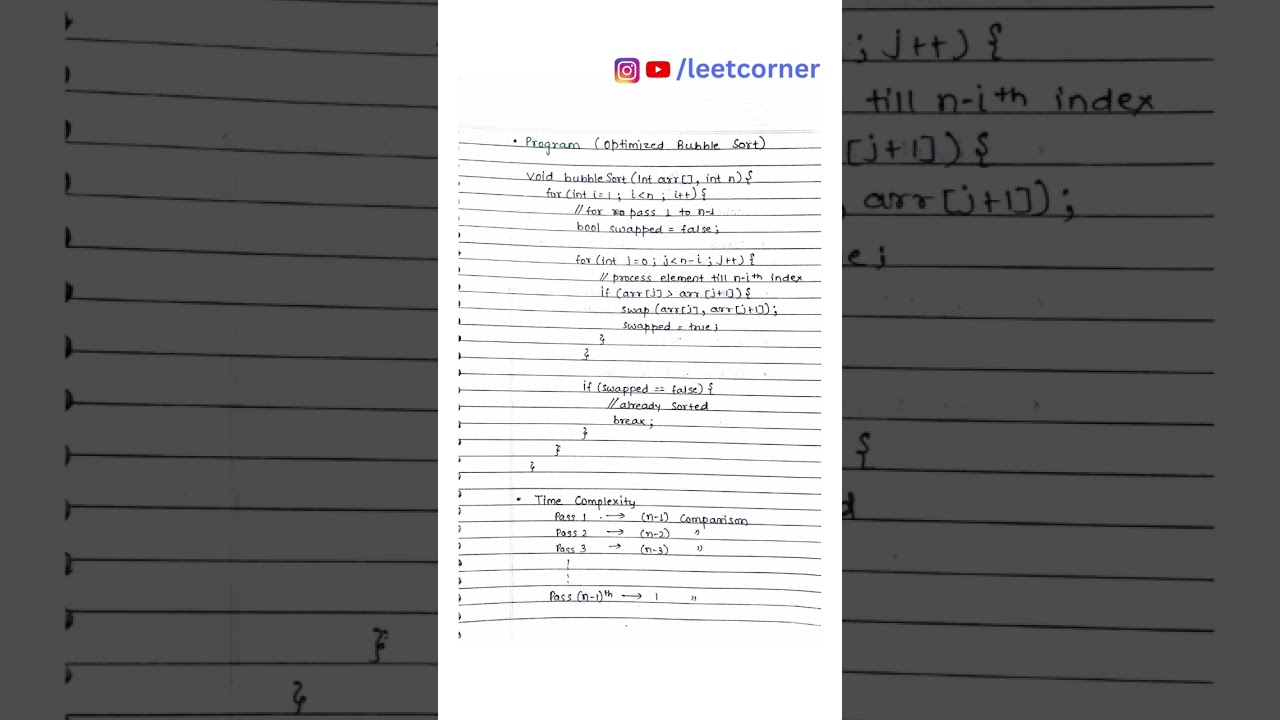 /leetcorner
• Program (Optimized Bubble Sort)
void bubbleSort (int arr[], int n) {
for (int i=1 ; i<n ; i++) {
// for pass 1 to n-1
bool swapped = false ;
for (int j=0 ; j<n-i ; j++) {
// process element till n-ith index
if (arr[j] > arr[j+1]) {
swap (arr[j], arr[j+1]);
swapped = true ;
}
}
if (swapped == false) {
// already sorted
break ;
}
}
}
• Time Complexity
Pass 1 → (n-1) Comparison
Pass 2 → (n-2) "
Pass 3 → (n-3) "
Pass (n-1)th → 1 "
; j++) {
till n-ith index
[j+1]) {
, arr[j+1]);
e ;
{
d
}
}